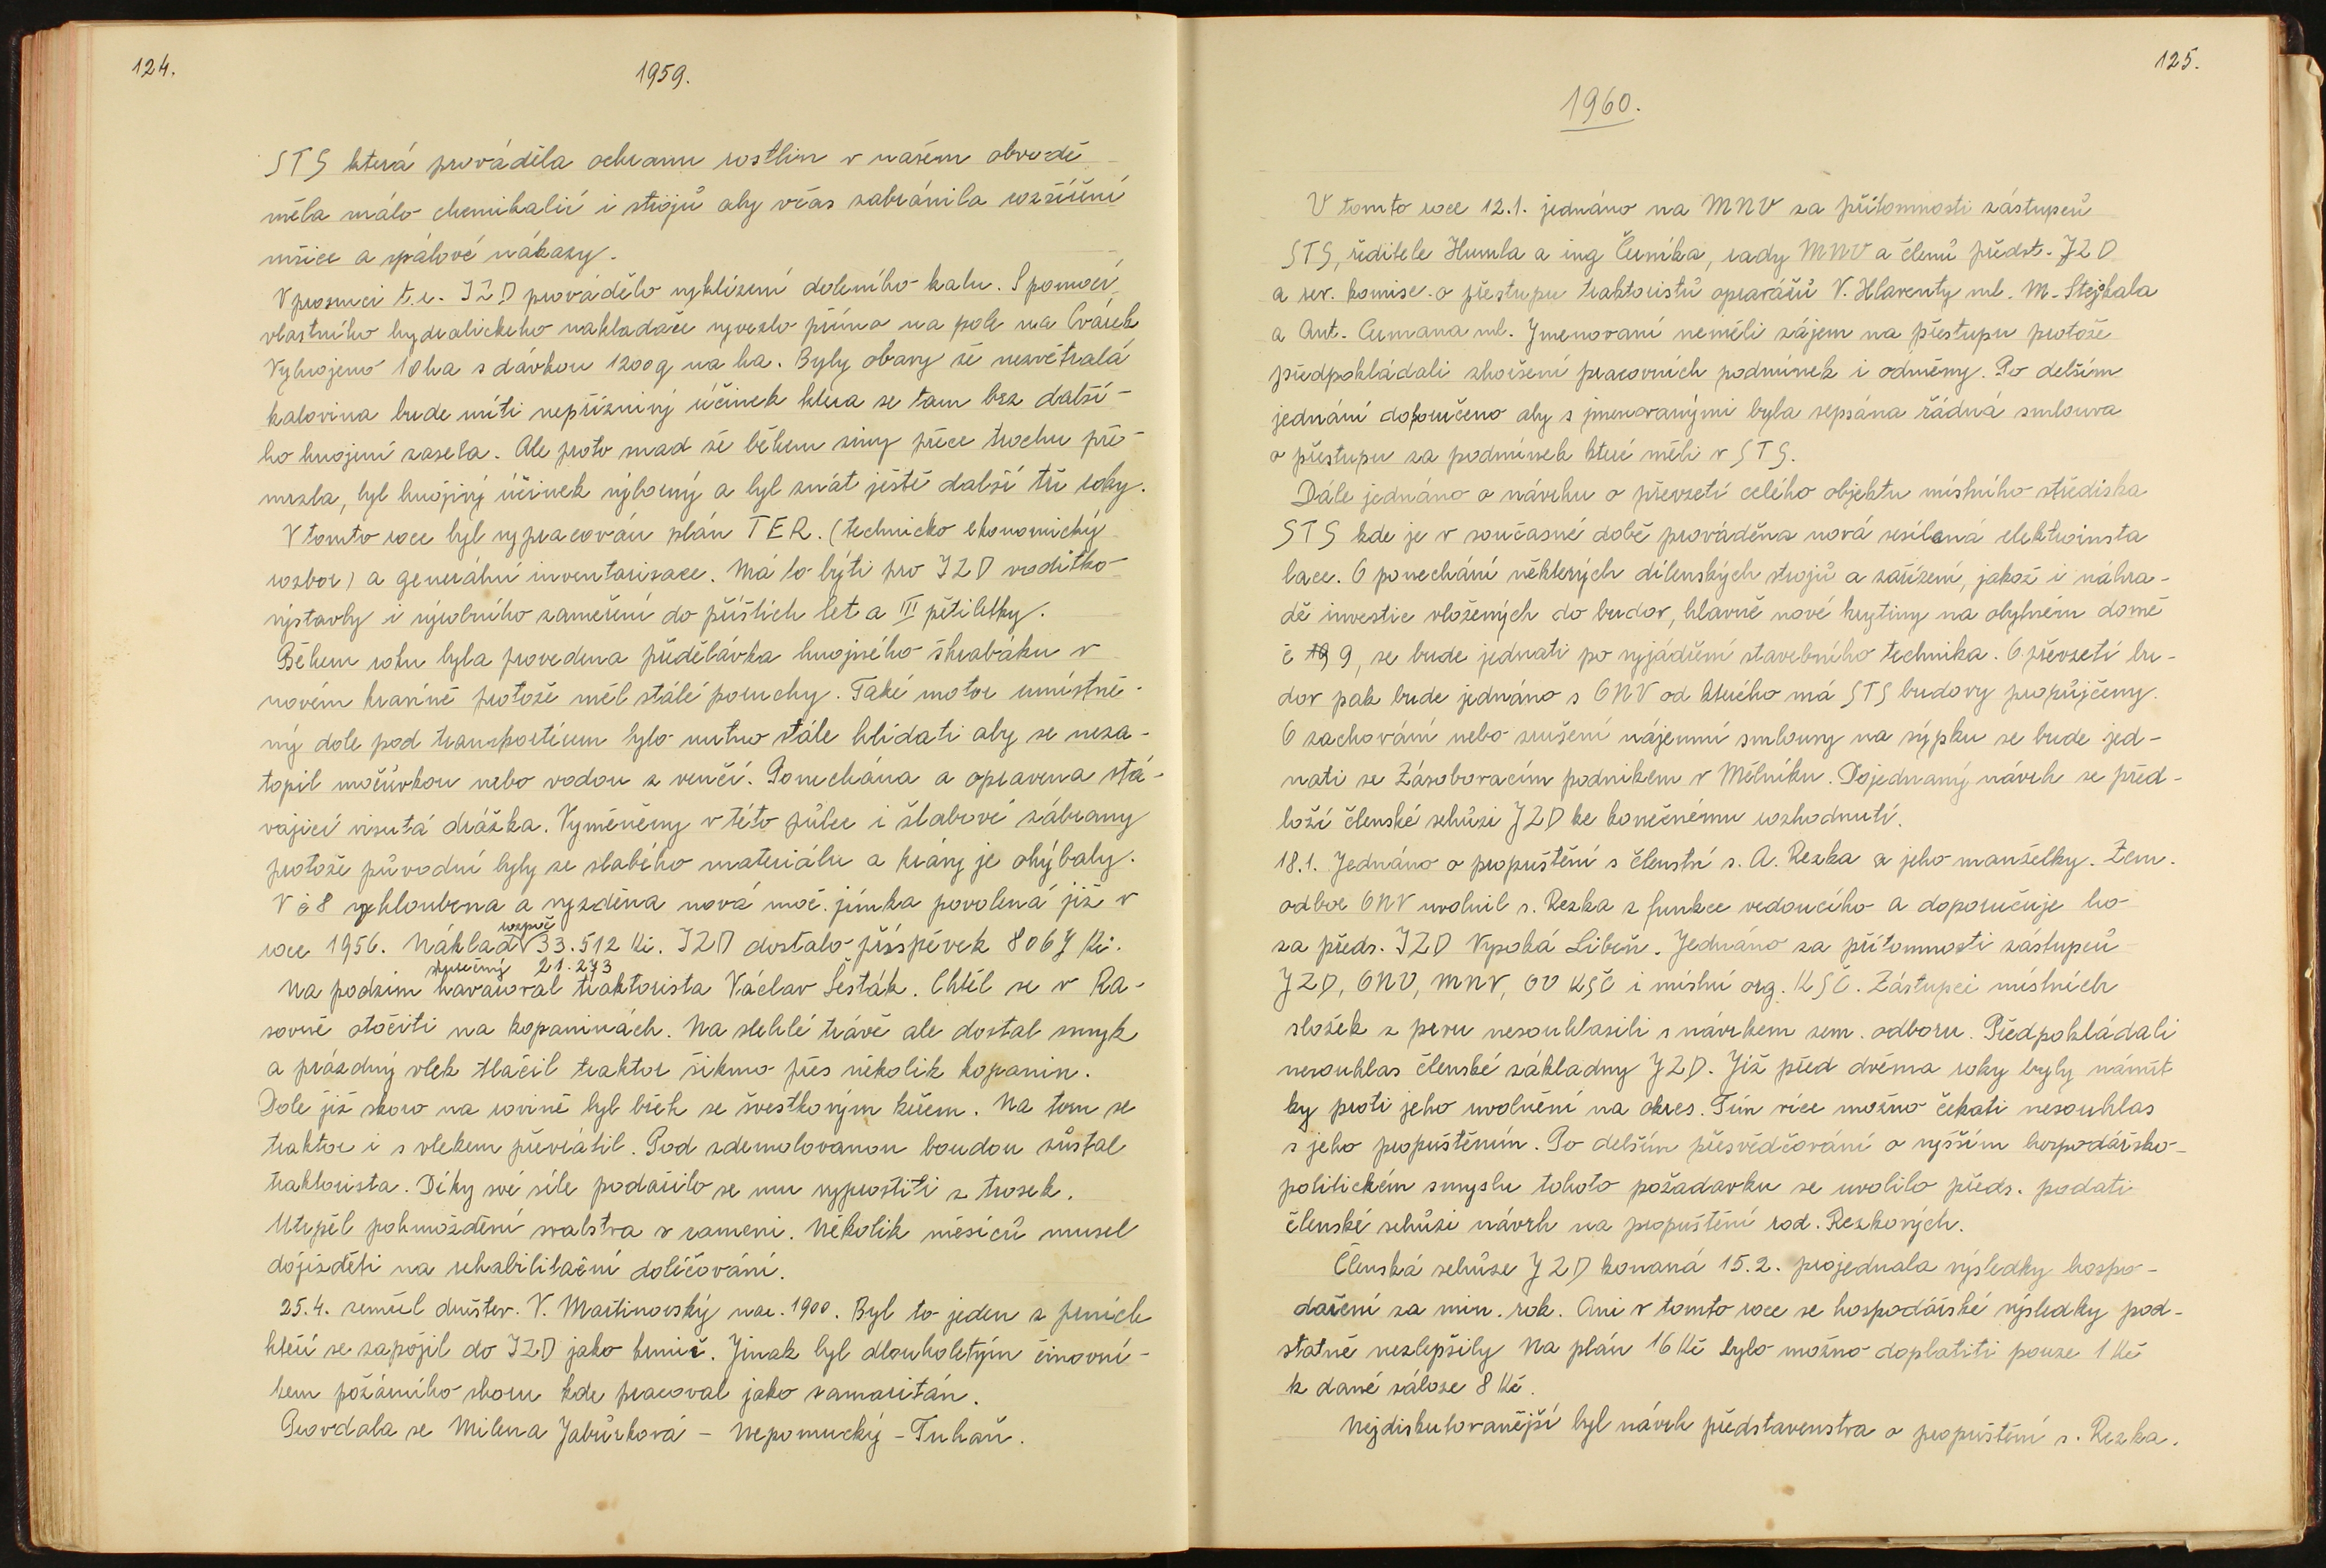 124.
1959.
STS která prováděla ochranu rostlin v našem obvodě
měla málo chemikalií i strojů aby včas zabránila rozšíření
mšice a spálové nákazy.
V prosinci t.r. JZD provádělo vyklizení doleního kalu. S pomocí
vlastního hydraulického nakladače vyvezlo přímo na pole na Cvárek
Vyhnojeno 10ha s dávkou 1200q na ha. Byly obavy že nezvětralá
kalovina bude míti nepříznivý účinek která se tam bez další-
ho hnojení zasela. Ale proto snad že během zimy přece trochu pro-
mrzla, byl hnojivý účinek výborný a byl znát ještě další tři roky.
V tomto roce byl vypracován plán TER. (technicko ekonomický
rozbor) a generální inventarisace. Má to býti pro JZD vodítko
výstavby i výrobního zaměření do příštích let a III pětiletky.
Během roku byla provedena předělávka hnojného škrabáku v
novém kravíně protože měl stálé poruchy. Také motor umístně-
ný dole pod transportérem bylo nutno stále hlídati aby se neza-
topil močůvkou nebo vodou z venčí. Ponechána a opravena stá-
vající visutá drážka. Vyměněny v této půlce i žlabové zábrany
protože původní byly ze slabého materiálu a krávy je ohýbaly.
V č 8 vyhloubena a vyzděna nová moč. jímka povolená již v
rozpoč
roce 1956. Náklad 33.512 Kč. JZD dostalo příspěvek 8067 Kč.
skutečný 21.273
Na podzim havaroval traktorista Václav Šesták. Chtěl se v Ra-
sovně otočiti na kopaninách. Na slehlé trávě ale dostal smyk
a prázdný vlek tlačil traktor šikmo přes několik kopanin.
Dole již skoro na rovině byl břeh se švestkovým keřem. Na tom se
traktor i s vlekem převrátil. Pod zdemolovanou boudou zůstal
traktorista. Díky své síle podařilo se mu vyprostiti z trosek.
Utrpěl pohmoždění svalstva v rameni. Několik měsíců musel
dojížděti na rehabilitační doličování.
25.4. zemřel družstev. V. Martinovský nar. 1900. Byl to jeden z prvních
kteří se zapojil do JZD jako krmič. Jinak byl dlouholetým činovní-
kem požárního sboru kde pracoval jako samaritán.
Provdala se Milena Jabůrková - Nepomucký - Tuhaň.
125.
1960.
V tomto roce 12.1. jednáno na MNV za přítomnosti zástupců
STS, ředitele Humla a ing Černíka, rady MNV a členů předst. JZD
a rev. komise o přestupu traktoristů opravářů V. Hlaventy ml. M. Stejskala
a Ant. Cumana ml. Jmenovaní neměli zájem na přestupu protože
předpokládali zhoršení pracovních podmínek i odměny. Po delším
jednání doporučeno aby s jmenovanými byla sepsána řádná smlouva
o přestupu za podmínek které měli v STS.
Dále jednáno o návrhu o převzetí celého objektu místního střediska
STS kde je v současné době prováděna nová zesílená elektroinsta
lace. O ponechání některých dílenských strojů a zařízení, jakož i náhra-
dě investic vložených do budov, hlavně nové krytiny na obytném domě
č 9, se bude jednati po vyjádření stavebního technika. O převzetí bu-
dov pak bude jednáno s ONV od kterého má STS budovy propůjčeny.
O zachování nebo zrušení nájemní smlouvy na sýpku se bude jed-
nati se Zásobovacím podnikem v Mělníku. Dojednaný návrh se před-
loží členské schůzi JZD ke konečnému rozhodnutí.
18.1. Jednáno o propuštění s členství s. A. Rezka a jeho manželky. Zem.
odbor ONV uvolnil s. Rezka z funkce vedoucího a doporučuje ho
za předs. JZD Vysoká Libeň. Jednáno za přítomnosti zástupců
JZD, ONV, MNV, OV KSČ i místní org. KSČ. Zástupci místních
složek z prvu nesouhlasili s návrhem zem. odboru. Předpokládali
nesouhlas členské základny JZD. Již před dvěma roky byly námit
ky proti jeho uvolnění na okres. Tím více možno čekati nesouhlas
s jeho propuštěním. Po delším přesvědčování o vyšším hospodářsko-
politickém smyslu tohoto požadavku se uvolilo předs. podati
členské schůzi návrh na propuštění rod. Rezkových.
Členská schůze JZD konaná 15.2. projednala výsledky hospo-
daření za min. rok. Ani v tomto roce se hospodářské výsledky pod-
statně nezlepšily Na plán 16 Kč bylo možno doplatiti pouze 1 Kč
k dané záloze 8 Kč.
Nejdiskutovanější byl návrh představenstva o propuštění s. Rezka.